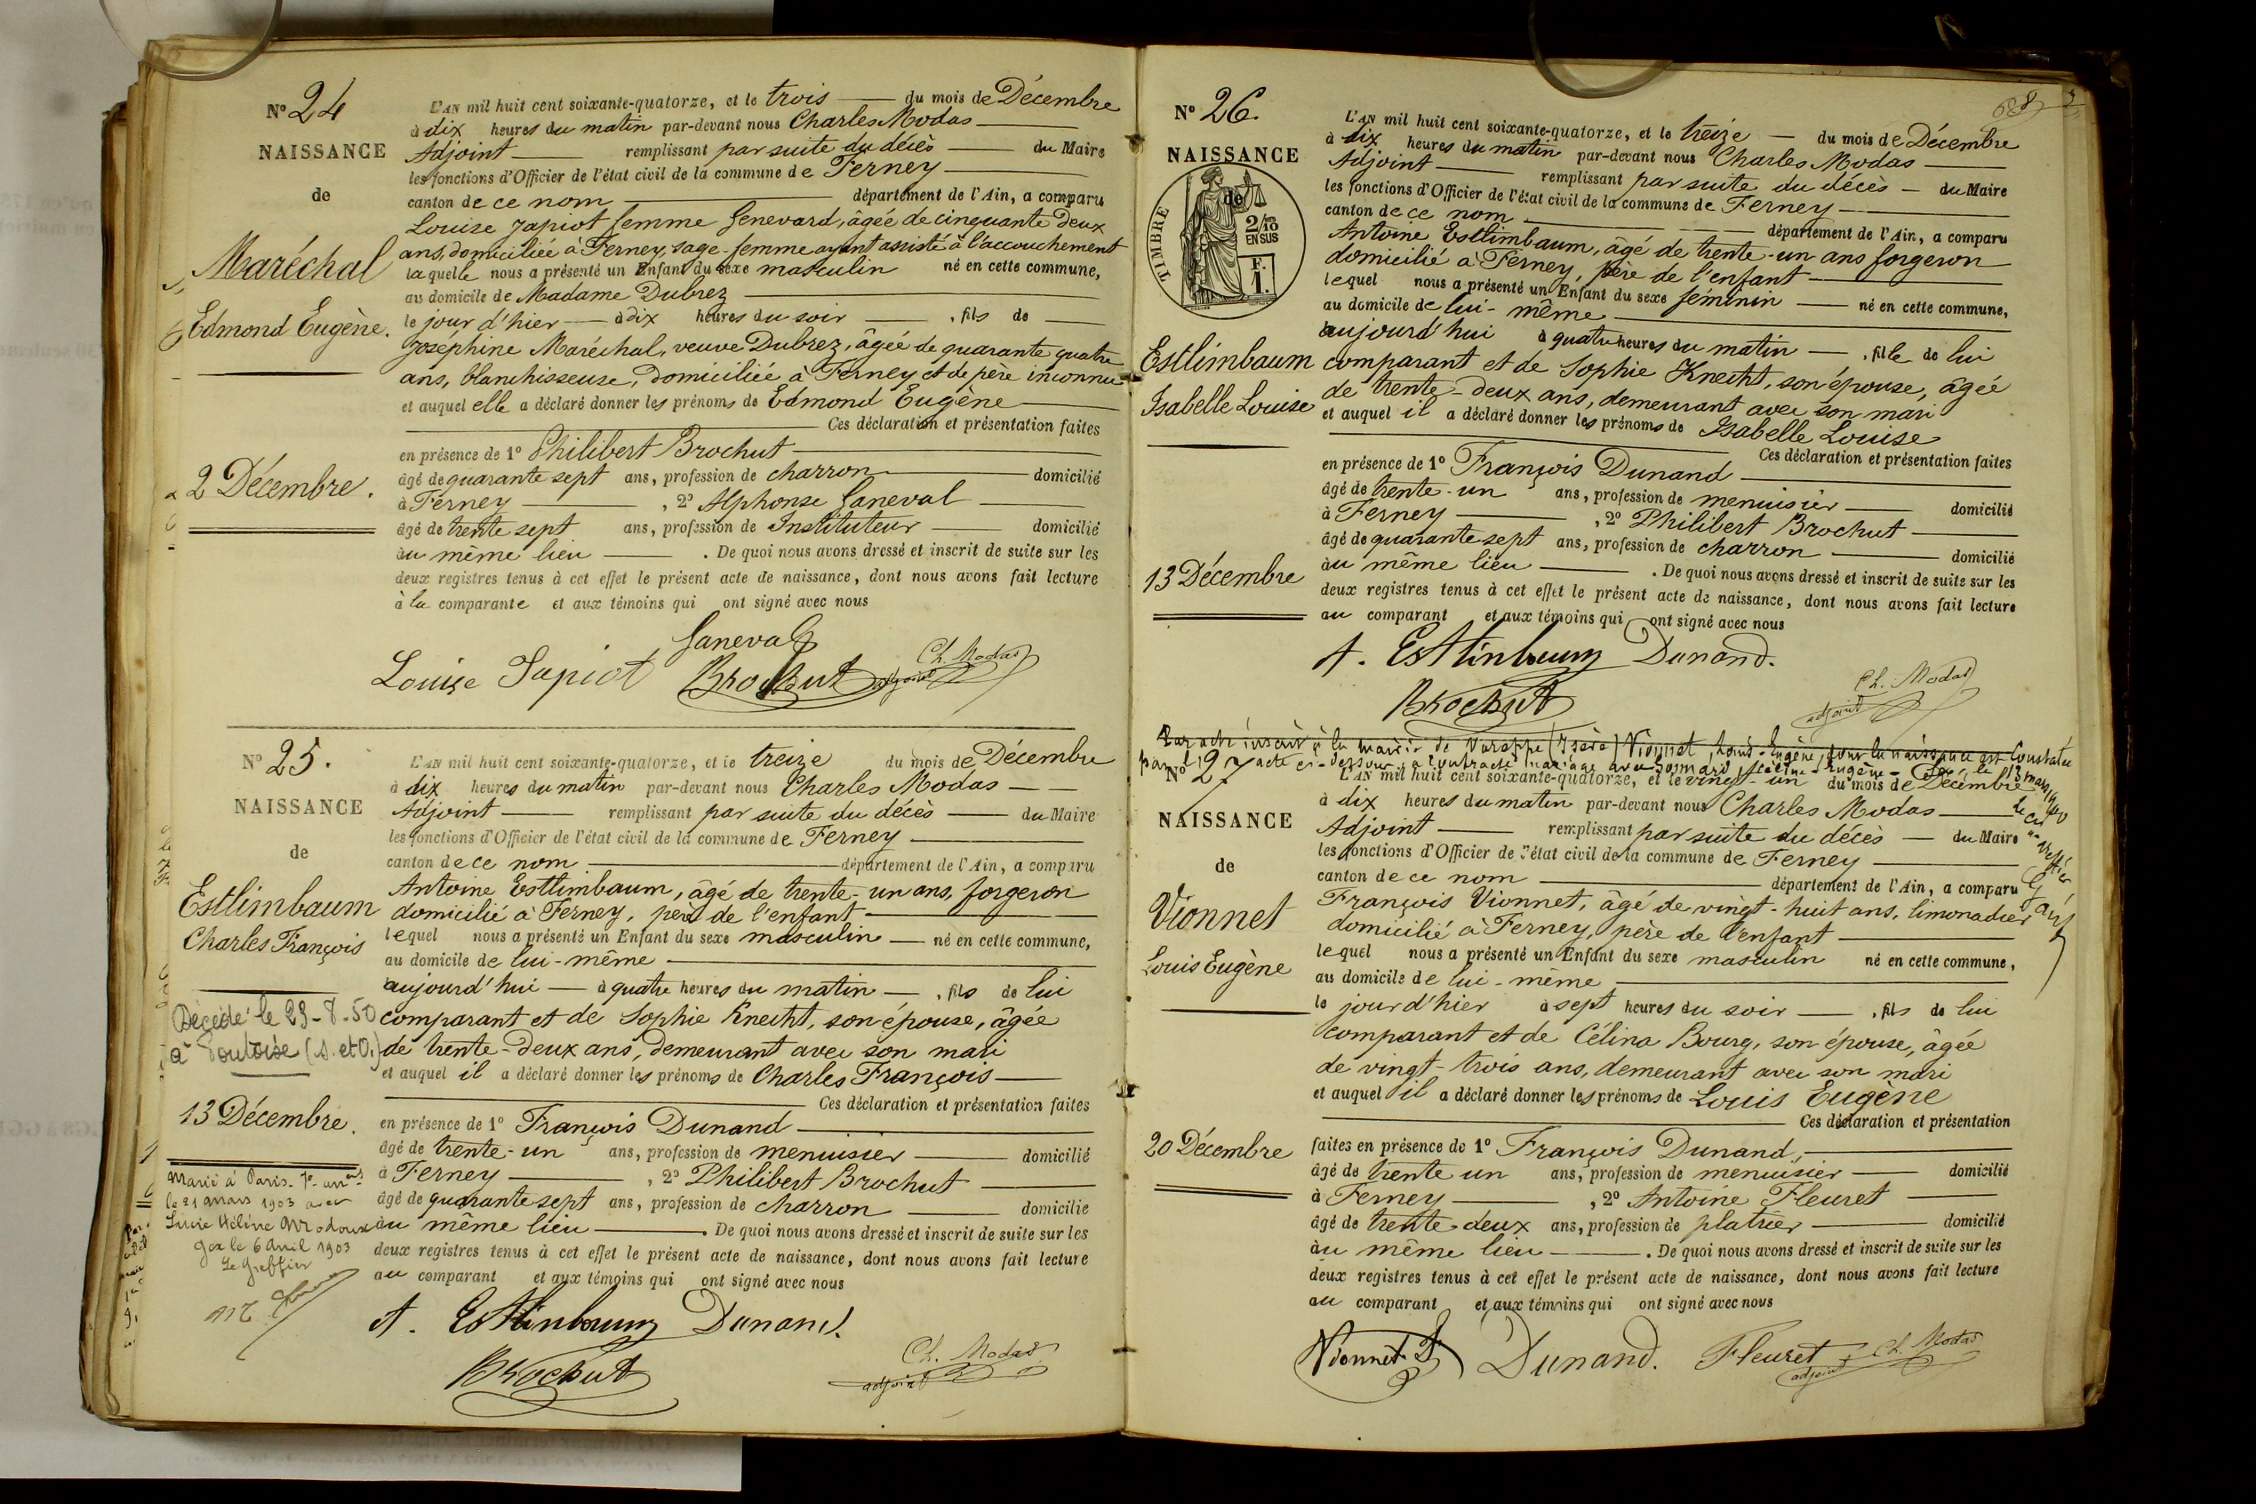 N° 24
NAISSANCE
de
Maréchal
Edmond Eugène.
2 Décembre.
L'AN mil huit cent soixante-quatorze, et le trois du mois de Décembre
à dix heures du matin par-devant nous Charles Modas
Adjoint remplissant par suite du décès du Maire
les fonctions d'Officier de l'état civil de la commune de Ferney
canton de ce nom département de l'Ain, a comparu
Louise Japiot femme Genevard, âgée de cinquante deux
ans, domiciliée à Ferney, sage-femme ayant assisté à l'accouchement
laquelle nous a présenté un Enfant du sexe masculin né en cette commune,
au domicile de Madame Dubrez
le jour d'hier à dix heures du soir , fils de
Joséphine Maréchal, veuve Dubrez, âgée de quarante quatre
ans, blanchisseuse, domiciliée à Ferney et de père inconnu
et auquel elle a déclaré donner les prénoms de Edmond Eugène
Ces déclaration et présentation faites
en présence de 1° Philibert Brochut
âgé de quarante sept ans, profession de charron domicilié
à Ferney , 2° Alphonse Janeval
âgé de trente sept ans, profession de Instituteur domicilié
au même lieu . De quoi nous avons dressé et inscrit de suite sur les
deux registres tenus à cet effet le présent acte de naissance, dont nous avons fait lecture
à la comparante et aux témoins qui ont signé avec nous
Janeval
Louise Japiot Brochut adjoint Ch. Modas
N° 25.
NAISSANCE
de
Estlimbaum
Charles François
Décédé le 29-8-50
à Pontoise (S. et O.)
13 Décembre.
Marié à Paris. 7e arr.
le 21 mars 1903 avec
Lucie Hélène
Gex le 6 Avril 1903
Le Greffier
L'AN mil huit cent soixante-quatorze, et le treize du mois de Décembre
à dix heures du matin par-devant nous Charles Modas
Adjoint remplissant par suite du décès du Maire
les fonctions d'Officier de l'état civil de la commune de Ferney
canton de ce nom département de l'Ain, a comparu
Antoine Estlimbaum, âgé de trente-un ans, forgeron
domicilié à Ferney, père de l'enfant
lequel nous a présenté un Enfant du sexe masculin né en cette commune,
au domicile de lui-même
aujourd'hui à quatre heures du matin , fils de lui
comparant et de Sophie Knecht, son épouse, âgée
de trente-deux ans, demeurant avec son mari
et auquel il a déclaré donner les prénoms de Charles François
Ces déclaration et présentation faites
en présence de 1° François Dunand
âgé de trente-un ans, profession de menuisier domicilié
à Ferney , 2° Philibert Brochut
âgé de quarante sept ans, profession de charron domicilié
au même lieu . De quoi nous avons dressé et inscrit de suite sur les
deux registres tenus à cet effet le présent acte de naissance, dont nous avons fait lecture
au comparant et aux témoins qui ont signé avec nous
A. Estlinbaum Dunand.
Brochut adjoint Ch. Modas
N° 26.
NAISSANCE
de
TIMBRE
2/10
EN SUS
F.
1.
Estlimbaum
Isabelle Louise
13 Décembre
L'AN mil huit cent soixante-quatorze, et le treize du mois de Décembre
à dix heures du matin par-devant nous Charles Modas
Adjoint remplissant par suite du décès du Maire
les fonctions d'Officier de l'état civil de la commune de Ferney
canton de ce nom département de l'Ain, a comparu
Antoine Estlimbaum, âgé de trente-un ans forgeron
domicilié à Ferney, père de l'enfant
lequel nous a présenté un Enfant du sexe féminin né en cette commune,
au domicile de lui-même
aujourd'hui à quatre heures du matin , fille de lui
comparant et de Sophie Knecht, son épouse, âgée
de trente-deux ans, demeurant avec son mari
et auquel il a déclaré donner les prénoms de Isabelle Louise
Ces déclaration et présentation faites
en présence de 1° François Dunand
âgé de trente-un ans, profession de menuisier domicilié
à Ferney , 2° Philibert Brochut
âgé de quarante sept ans, profession de charron domicilié
au même lieu . De quoi nous avons dressé et inscrit de suite sur les
deux registres tenus à cet effet le présent acte de naissance, dont nous avons fait lecture
au comparant et aux témoins qui ont signé avec nous
A. Estlinbaum Dunand.
Brochut adjoint Ch. Modas
Par acte inscrit à la mairie de Voreppe (Isère) Vionnet, Louis-Eugène, dont la naissance est constatée
par l'acte ci-dessous, a contracté mariage avec le 13 mars
N° 27
NAISSANCE
de
Vionnet
Louis Eugène
20 Décembre
L'AN mil huit cent soixante-quatorze, et le vingt-un du mois de Décembre
à dix heures du matin par-devant nous Charles Modas
Adjoint remplissant par suite du décès du Maire
les fonctions d'Officier de l'état civil de la commune de Ferney
canton de ce nom département de l'Ain, a comparu
François Vionnet, âgé de vingt-huit ans, limonadier
domicilié à Ferney, père de l'enfant
lequel nous a présenté un Enfant du sexe masculin né en cette commune,
au domicile de lui-même
le jour d'hier à sept heures du soir , fils de lui
comparant et de Célina Bourg, son épouse, âgée
de vingt-trois ans, demeurant avec son mari
et auquel il a déclaré donner les prénoms de Louis Eugène
Ces déclaration et présentation
faites en présence de 1° François Dunand,
âgé de trente un ans, profession de menuisier domicilié
à Ferney , 2° Antoine Fleuret
âgé de trente-deux ans, profession de platrier domicilié
au même lieu . De quoi nous avons dressé et inscrit de suite sur les
deux registres tenus à cet effet le présent acte de naissance, dont nous avons fait lecture
au comparant et aux témoins qui ont signé avec nous
Vionnet F Dunand. Fleuret adjoint Ch. Modas